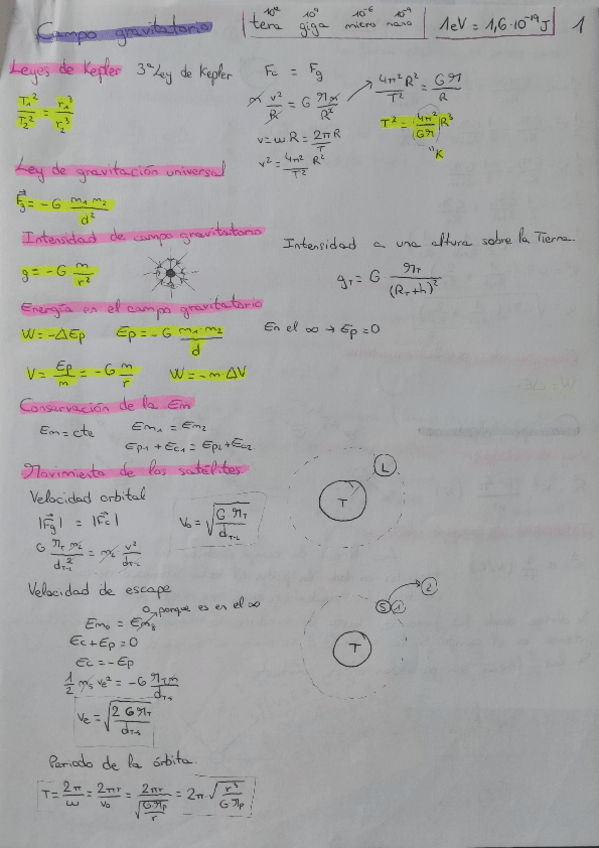 Campo gravitatorio
10¹² 10⁹ 10⁻⁶ 10⁻⁹
tera giga micro nano
1eV = 1,6·10⁻¹⁹J
1
Leyes de Kepler 3ª Ley de Kepler
T₁²/T₂² = r₁³/r₂³
Fc = Fg
m v²/R = G M m/R
v = ωR = 2πR/T
v² = 4π²/T² R²
4π²R²/T² = GM/R
T² = (4π²/GM) R³
"K
Ley de gravitación universal
Fg = -G m₁ m₂/d²
Intensidad de campo gravitatorio
g = -G m/r²
Intensidad a una altura sobre la Tierra.
g_T = G M_T/(R_T+h)²
Energía en el campo gravitatorio
W = -ΔEp Ep = -G m₁·m₂/d
En el ∞ → Ep = 0
V = Ep/m = -G m/r W = -m·ΔV
Conservación de la Em
Em = cte Em₁ = Em₂
Ep₁ + Ec₁ = Ep₂ + Ec₂
Movimiento de los satélites
Velocidad orbital
|Fg| = |Fc|
G M_T m_L/d²_T-L = m_L v²/d_T-L
V₀ = √(G M_T/d_T-L)
L
T
Velocidad de escape
0, porque es en el ∞
Em₀ = Em_B
Ec + Ep = 0
Ec = -Ep
1/2 m_s ve² = -G M_T m/d_T-s
Ve = √(2 G M_T/d_T-s)
S 1 2
T
Periodo de la órbita.
T = 2π/ω = 2πr/v₀ = 2πr/√(G M_p/r) = 2π √(r³/G M_p)